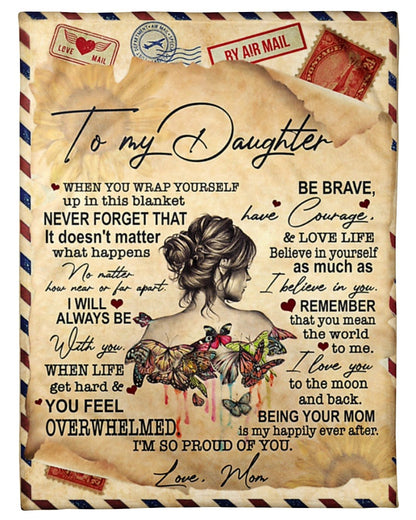 LOVE
MAIL
BY AIR MAIL
To my Daughter
WHEN YOU WRAP YOURSELF
up in this blanket
NEVER FORGET THAT
It doesn't matter
what happens
No matter
how near or far apart.
I WILL
ALWAYS BE
With you.
WHEN LIFE
get hard &
YOU FEEL
OVERWHELMED,
BE BRAVE,
have Courage,
& LOVE LIFE
Believe in yourself
as much as
I believe in you.
REMEMBER
that you mean
the world
to me.
I love you
to the moon
and back.
BEING YOUR MOM
is my happily ever after.
I'M SO PROUD OF YOU.
Love, Mom